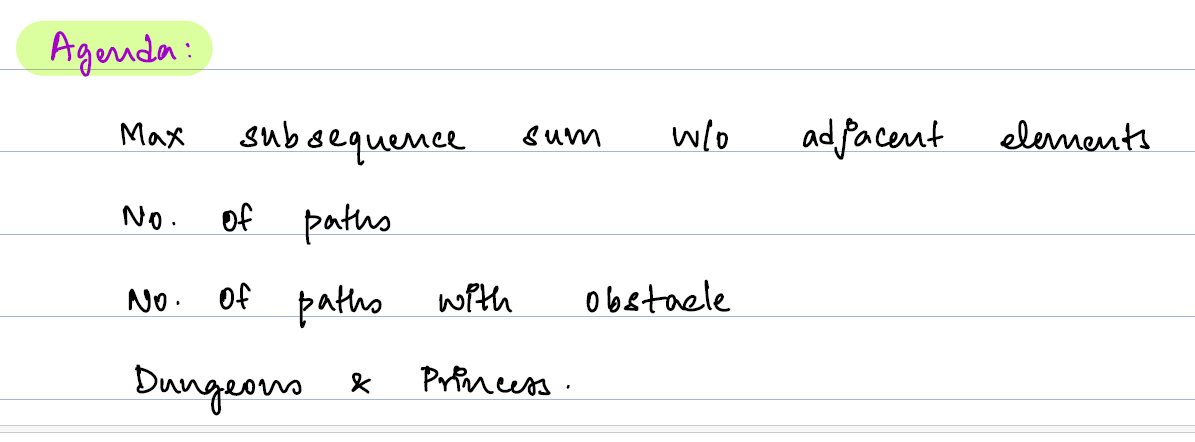 Agenda:
Max subsequence sum w/o adjacent elements
No. of paths
No. of paths with obstacle
Dungeons & Princess.